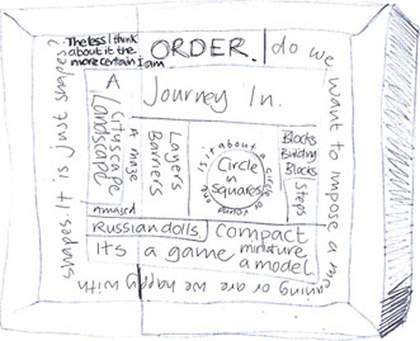 The less I think
about it the
more certain I am
ORDER.
do we want to impose a meaning or are we happy with shapes. It is just shapes?
A
Journey In.
Cityscape
Landscape
A maze
Amazed
Layers
Barriers
is it about a circle or
Circle
in
Squares
Blocks
Building
Blocks
Steps
Russian dolls.
Compact
miniature
a model.
Its a game